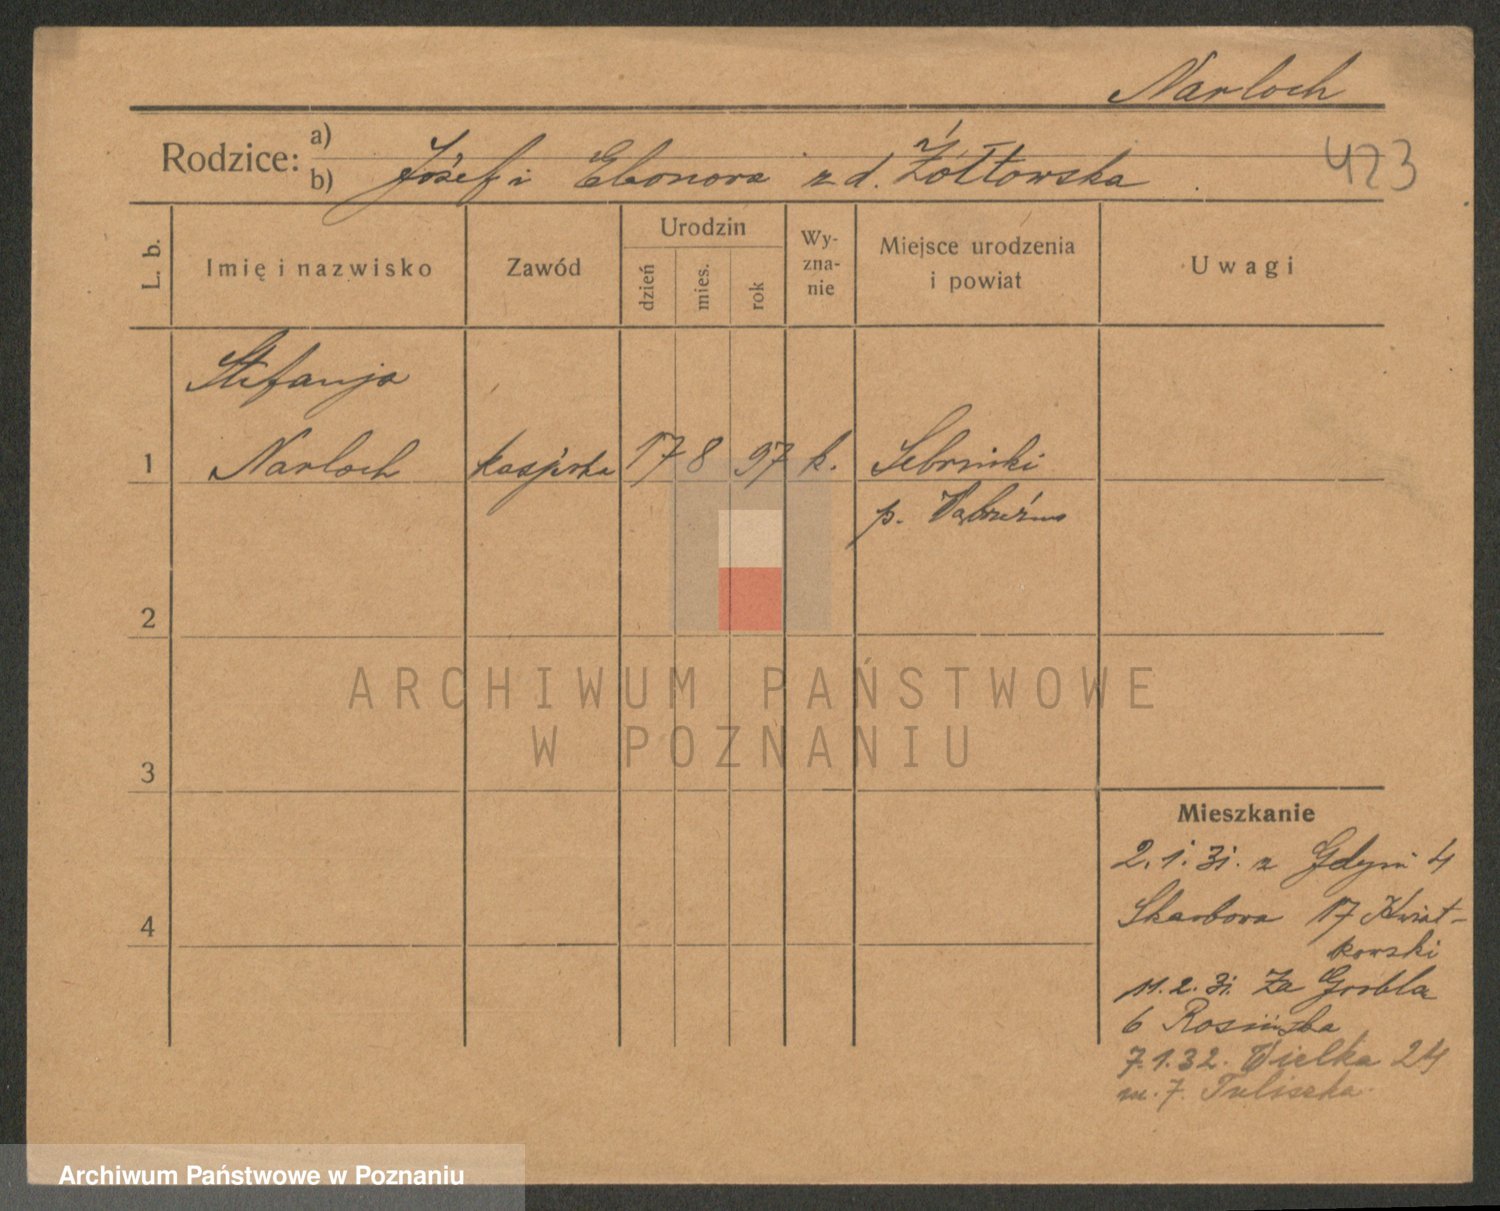 Narloch
Rodzice: a)
b) Józef i Eleonora z d. Żółtowska
423
L. b.
Imię i nazwisko
Zawód
Urodzin
dzień
mies.
rok
Wy-
zna-
nie
Miejsce urodzenia
i powiat
Uwagi
Stefanja
1 Narloch kasjerka 17 8 97 k.
p. Wąbrzeźno
2
ARCHIWUM PAŃSTWOWE
W POZNANIU
3
4
Mieszkanie
2.1.31. z Gdyni 4
Skarbowa 17 Kwiat-
kowski
11.2.31. Za Groblą
6 Rosińska
7.1.32. Wielka 24
m. 7. Tuliszka
Archiwum Państwowe w Poznaniu